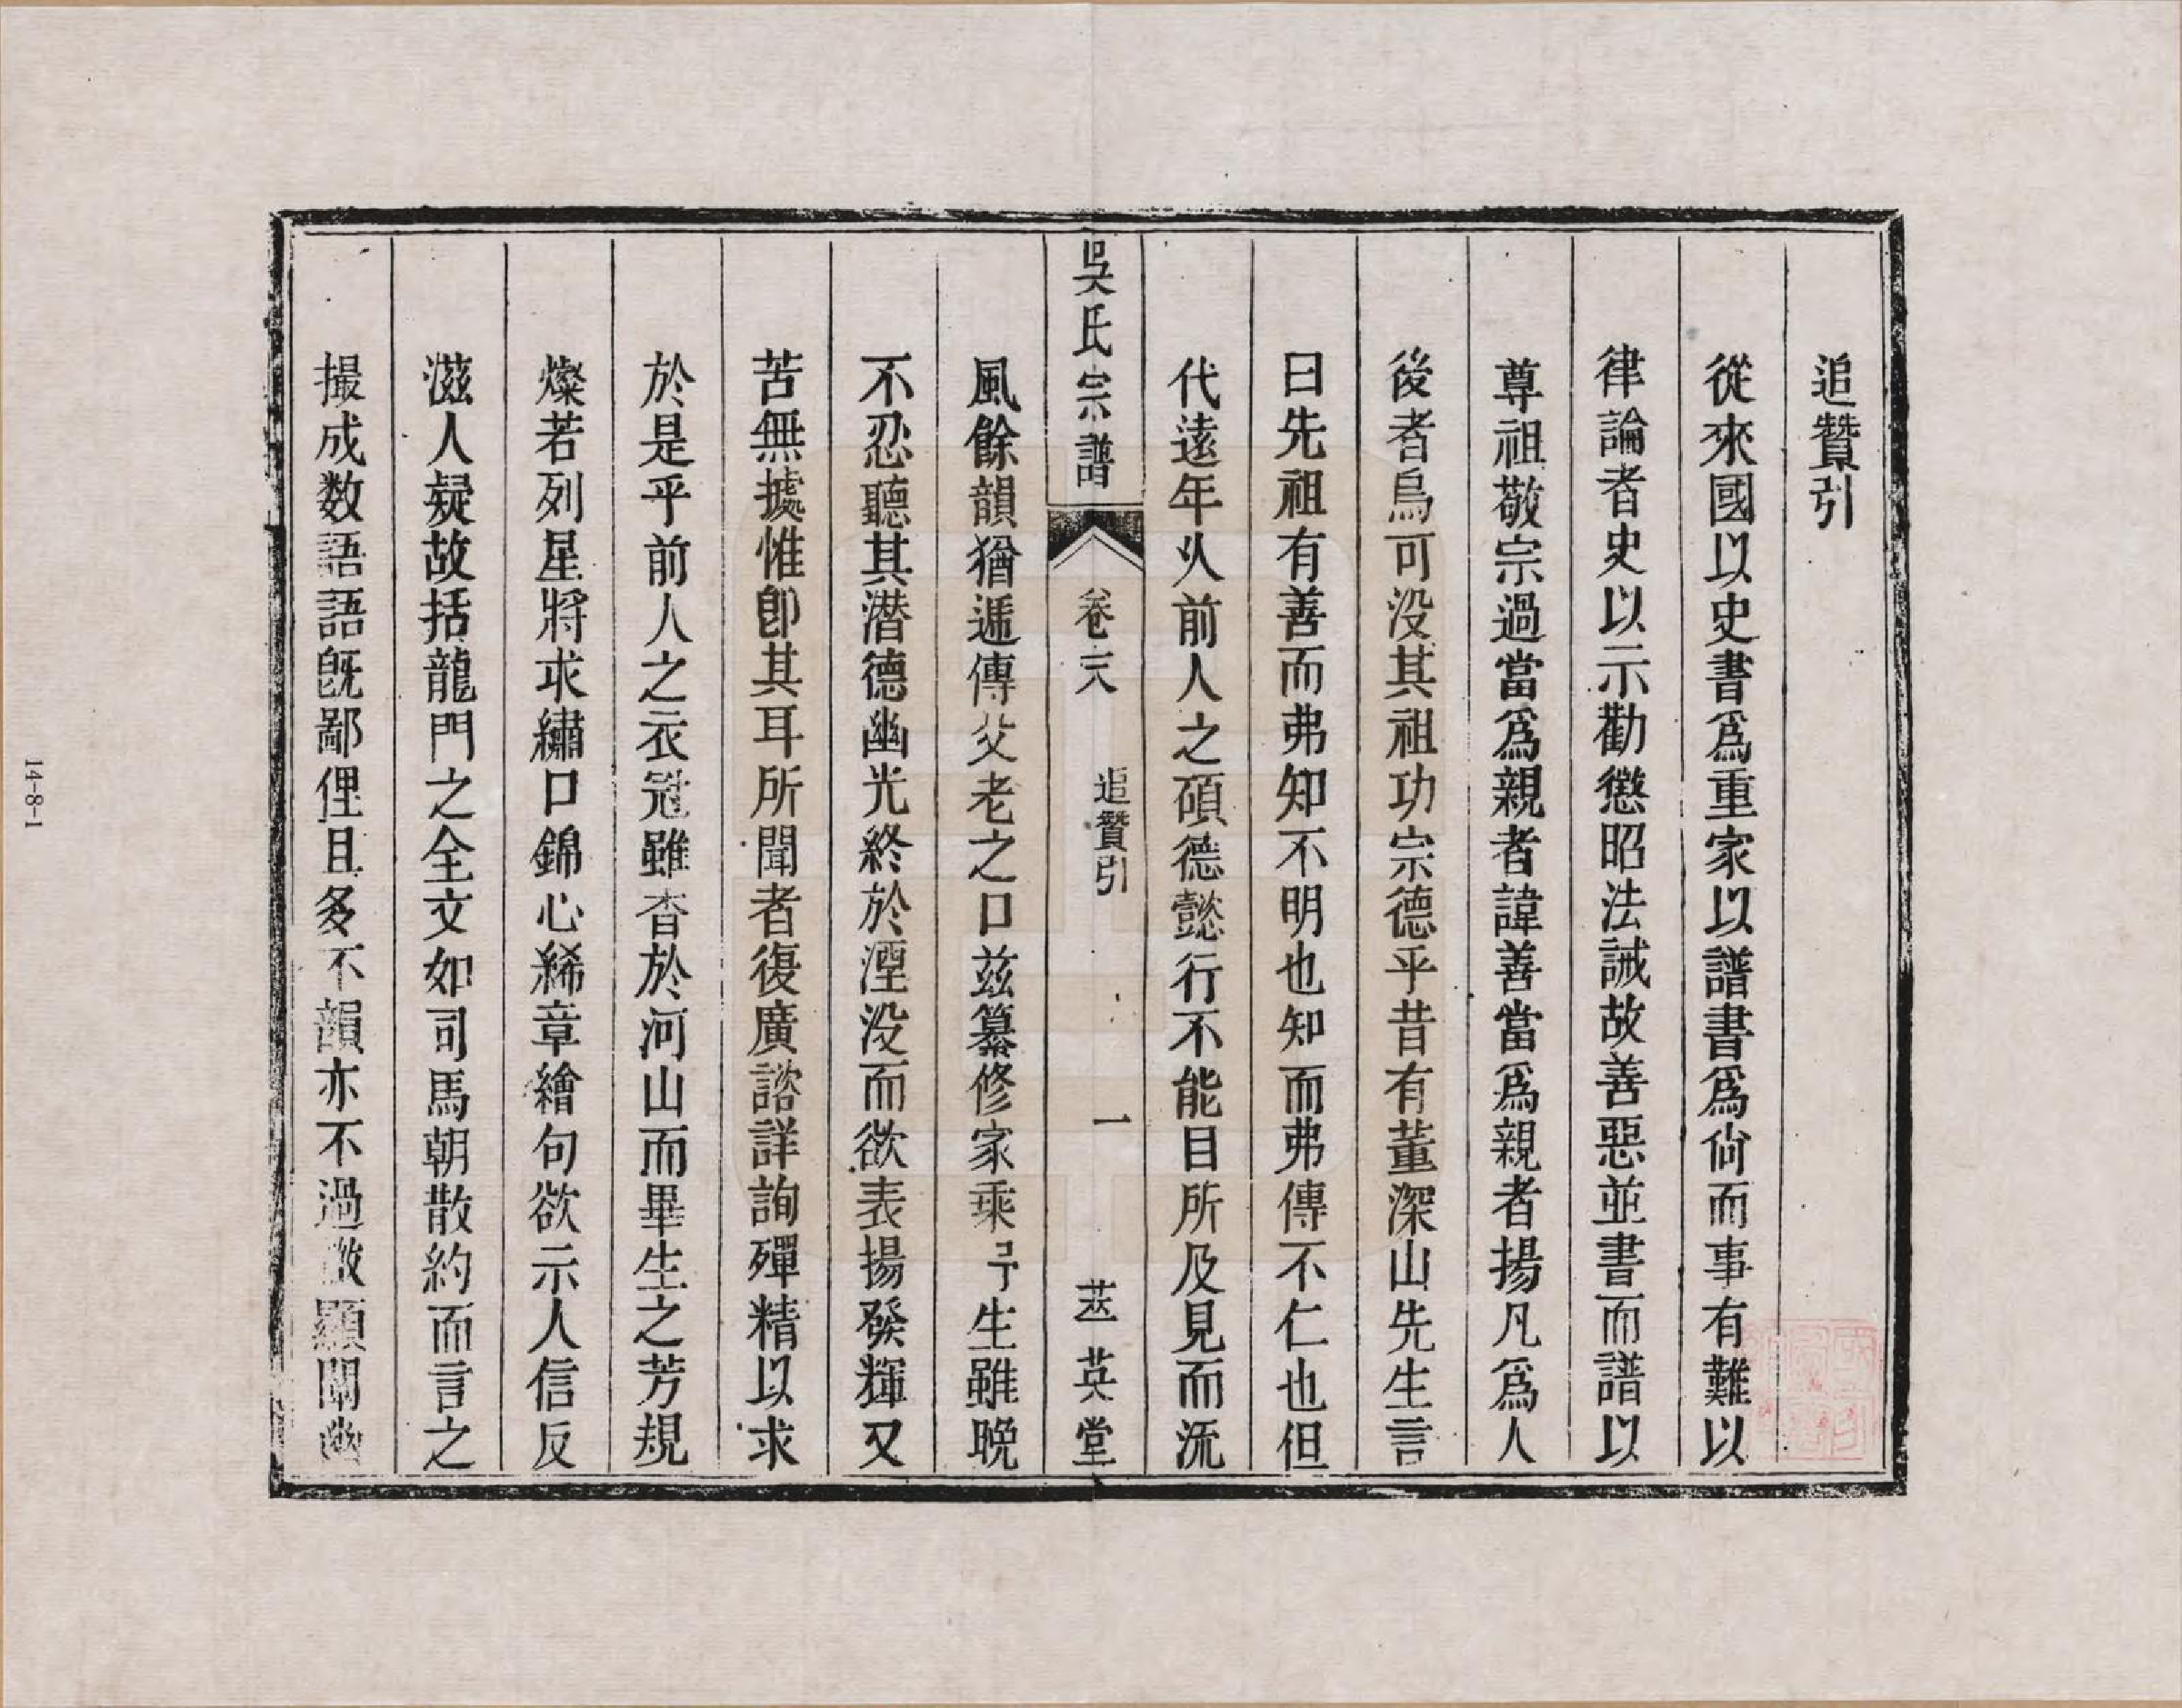 追贊引
從來國以史書爲重家以譜書爲尙而事有難以
律論者史以示勸懲昭法誡故善惡並書而譜以
尊祖敬宗過當爲親者諱善當爲親者揚凡爲人
後者烏可没其祖功宗德乎昔有董深山先生言
曰先祖有善而弗知不明也知而弗傳不仁也但
代遠年火前人之碩德懿行不能目所及見而流
吳氏宗譜
卷六
追贊引
一
英堂
風餘韻猶遞傳父老之口兹纂修家乘予生雖晩
不忍聽其潜德幽光終於湮没而欲表揚發輝又
苦無據惟卽其耳所聞者復廣諮詳詢殫精以求
於是乎前人之衣冠雖杳於河山而畢生之芳規
燦若列星將求繡口錦心絺章繪句欲示人信反
滋人疑故括龍門之全文如司馬朝散約而言之
撮成数語語旣鄙俚且多不韻亦不過微顯闡幽
14-8-1